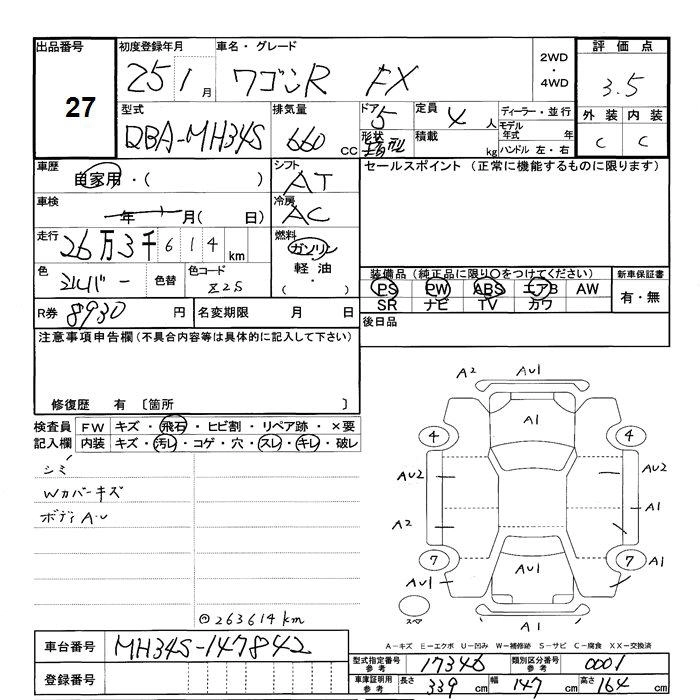 出品番号
27
初度登録年月
25 1 月
車名・グレード
ワゴンR FX
2WD
・
4WD
評価点
3.5
外装 内装
C C
型式
DBA-MH34S
排気量
660 CC
ドア 5
形状 箱型
定員 4 人
積載 kg
ディーラー・並行
モデル年式 年
ハンドル 左・右
車歴
自家用・( )
シフト
AT
セールスポイント (正常に機能するものに限ります)
車検
年 月( 日)
冷房
AC
走行
26万3千614 km
燃料
ガソリン
軽油
( ・ )
色
シルバー
色替
色コード
Z2S
装備品 (純正品に限り○をつけてください)
PS PW ABS エアB AW
SR ナビ TV カワ
新車保証書
有・無
R券 8930 円
名変期限 月 日
後日品
注意事項申告欄(不具合内容等は具体的に記入して下さい)
修復歴 有 〔箇所 〕
検査員記入欄
FW キズ・飛石・ヒビ割・リペア跡・×要
内装 キズ・汚レ・コゲ・穴・スレ・キレ・破レ
シミ
Wカバーキズ
ボディA・U
263614km
A2 AU1
A1
4 4
AU2 AU2
A2 A1
7 7 A1
AU1 AU1 AU1
スペア
A1
A-キズ E-エクボ U-凹み W-補修跡 S-サビ C-腐食 XX-交換済
車台番号 MH34S-147842
登録番号
型式指定番号 参考 17346
類別区分番号 参考 0001
車庫証明用 参考 長さ 339 cm 幅 147 cm 高さ 164 cm